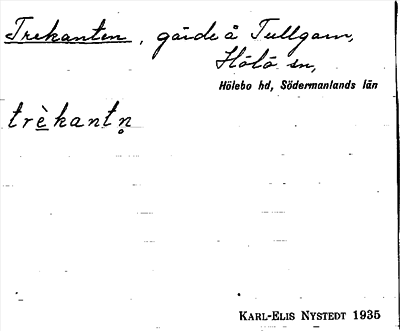 Trekanten, gärde å Tullgarn,
Hölö sn,
Hölebo hd, Södermanlands län
trè̲kantn̥
KARL-ELIS NYSTEDT 1935